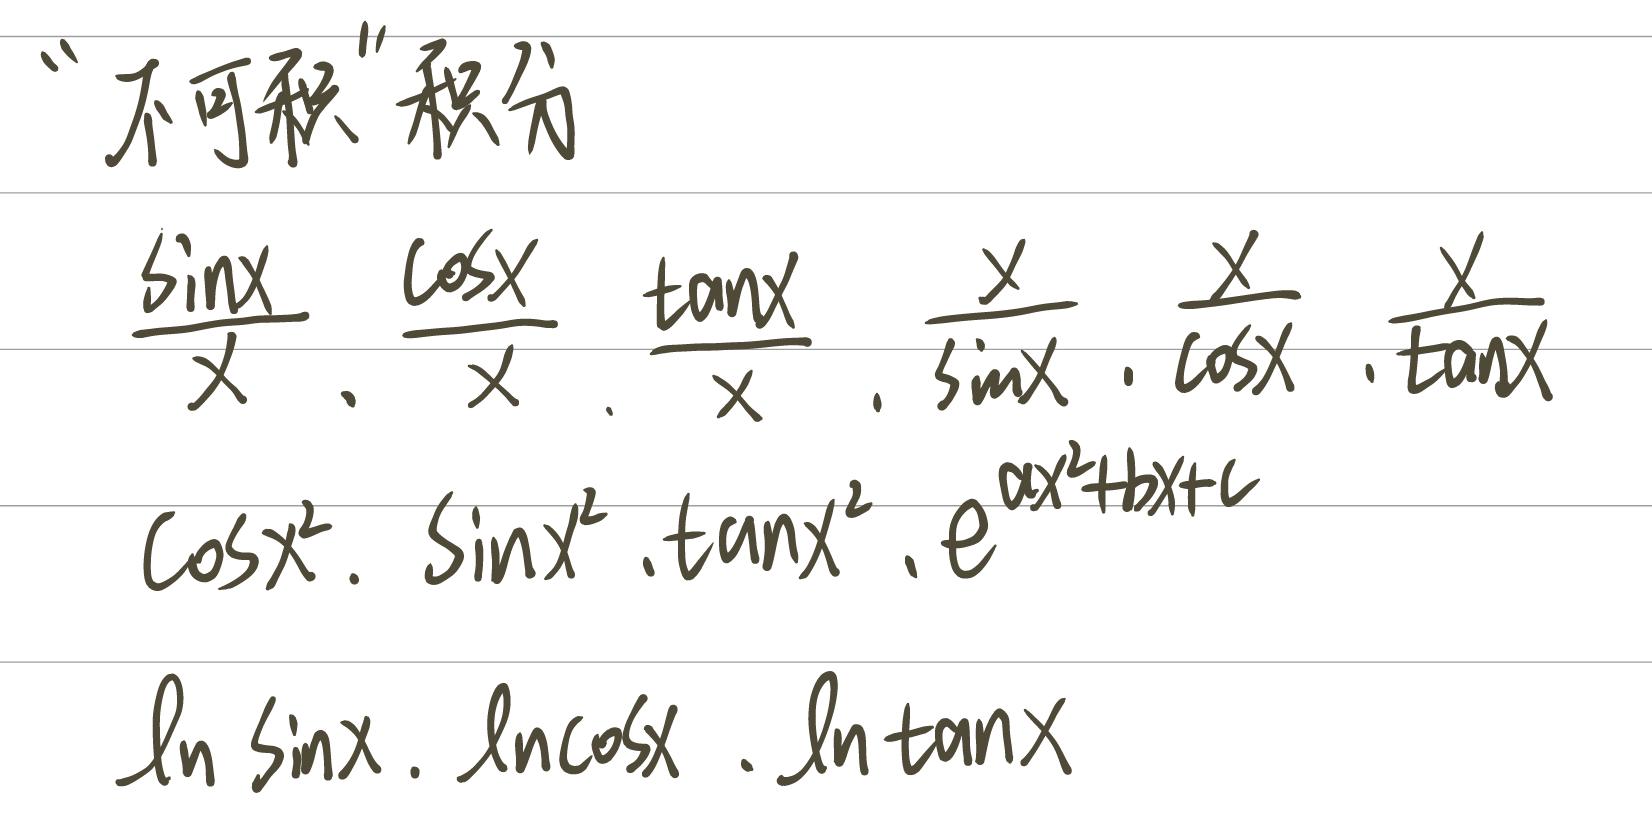 “不可积”积分
sinx/x . cosx/x . tanx/x . x/sinx . x/cosx . x/tanx
cosx² . sinx² . tanx² . e^(ax²+bx+c)
ln sinx . lncosx . ln tanx